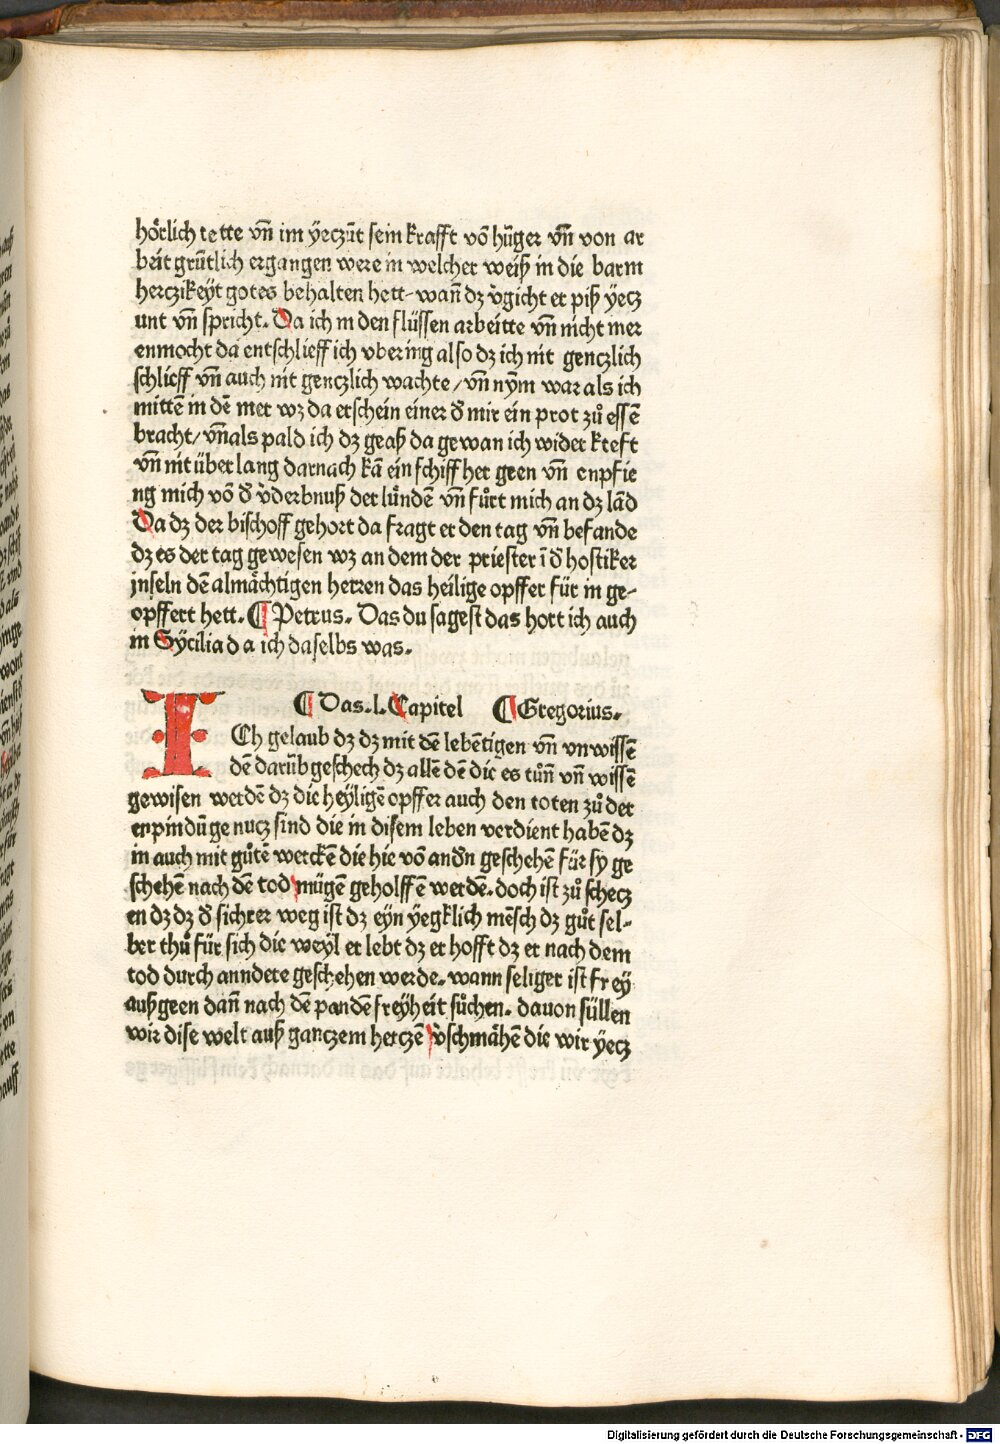 hörlich tette vñ im ÿeczūt sein krafft vō hūger vñ von ar
beit grūtlich ergangen were in welcher weiß in die barm
herczikeÿt gotes behalten hett-wañ dz v̓gicht er piß ÿecz
unt vñ spricht. Da ich in den flüssen arbeitte vñ nicht mer
en mocht da entschlieff ich vbering also dz ich nit genczlich
schlieff vñ auch nit genczlich wachte/vñ nÿm war als ich
mittē in dē mer wz da erschein einer d̓ mir ein prot zů essē
bracht/vñ als pald ich dz geaß da gewan ich wider kreft
vñ nit über lang darnach kā ein schiff her geen vñ enpfie
ng mich vō d̓ v̓derbnuß der lündē vñ fůrt mich an dz lād
Da dz der bischoff gehort da fragt er den tag vñ befande
dz es der tag gewesen wz an dem der priester ī d̓ hostiker
jnseln dē almächtigen herren das heilige opffer für in ge-
opffert hett. ¶ Petrus. Das du sagest das hort ich auch
in Sÿcilia da ich daselbs was.
¶ Das.l.Capitel ¶ Gregorius.
ICh gelaub dz dz mit dē lebētigen vñ vnwissē
dē darūb geschech dz allē dē die es tůn̄ vñ wissē
gewisen werdē dz die heÿligē opffer auch den toten zů der
enpindūge nucz sind die in disem leben verdient habē dz
in auch mit gůtē werckē die hie vō and̓n geschehē für sy ge
schehē nach dē tod mügē geholffē werdē. doch ist zů schecz
en dz dz d̓ sichrer weg ist dz eÿn ÿegklich mēsch dz gůt sel-
ber thů für sich die weyl er lebt dz er hofft dz er nach dem
tod durch anndere geschehen werde. wann seliger ist freÿ
außgeen dañ nach dē pandē freÿheit süchen. dauon süllen
wir dise welt auß ganczem herczē v̓schmähē die wir ÿecz
Digitalisierung gefördert durch die Deutsche Forschungsgemeinschaft - DFG